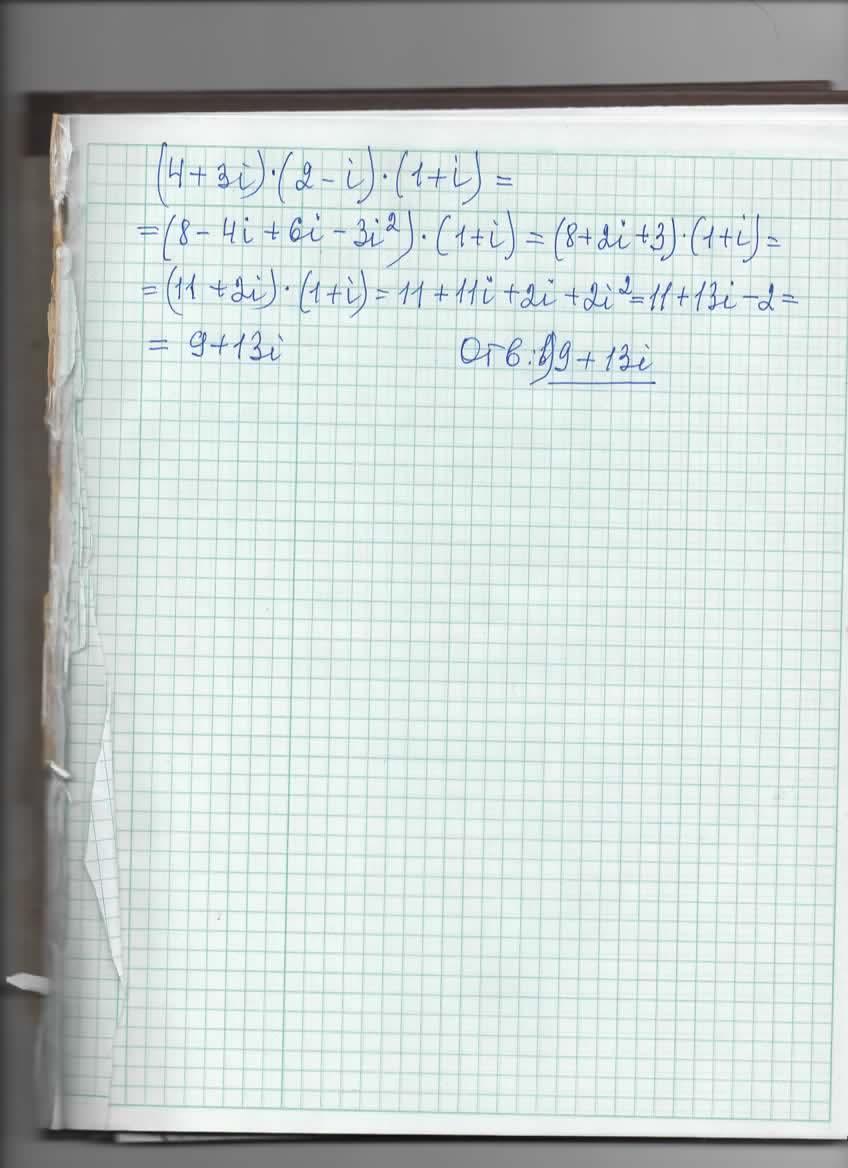 (4+3i)·(2-i)·(1+i)=
=(8-4i+6i-3i²)·(1+i)=(8+2i+3)·(1+i)=
=(11+2i)·(1+i)=11+11i+2i+2i²=11+13i-2=
= 9+13i Отв: 9+13i